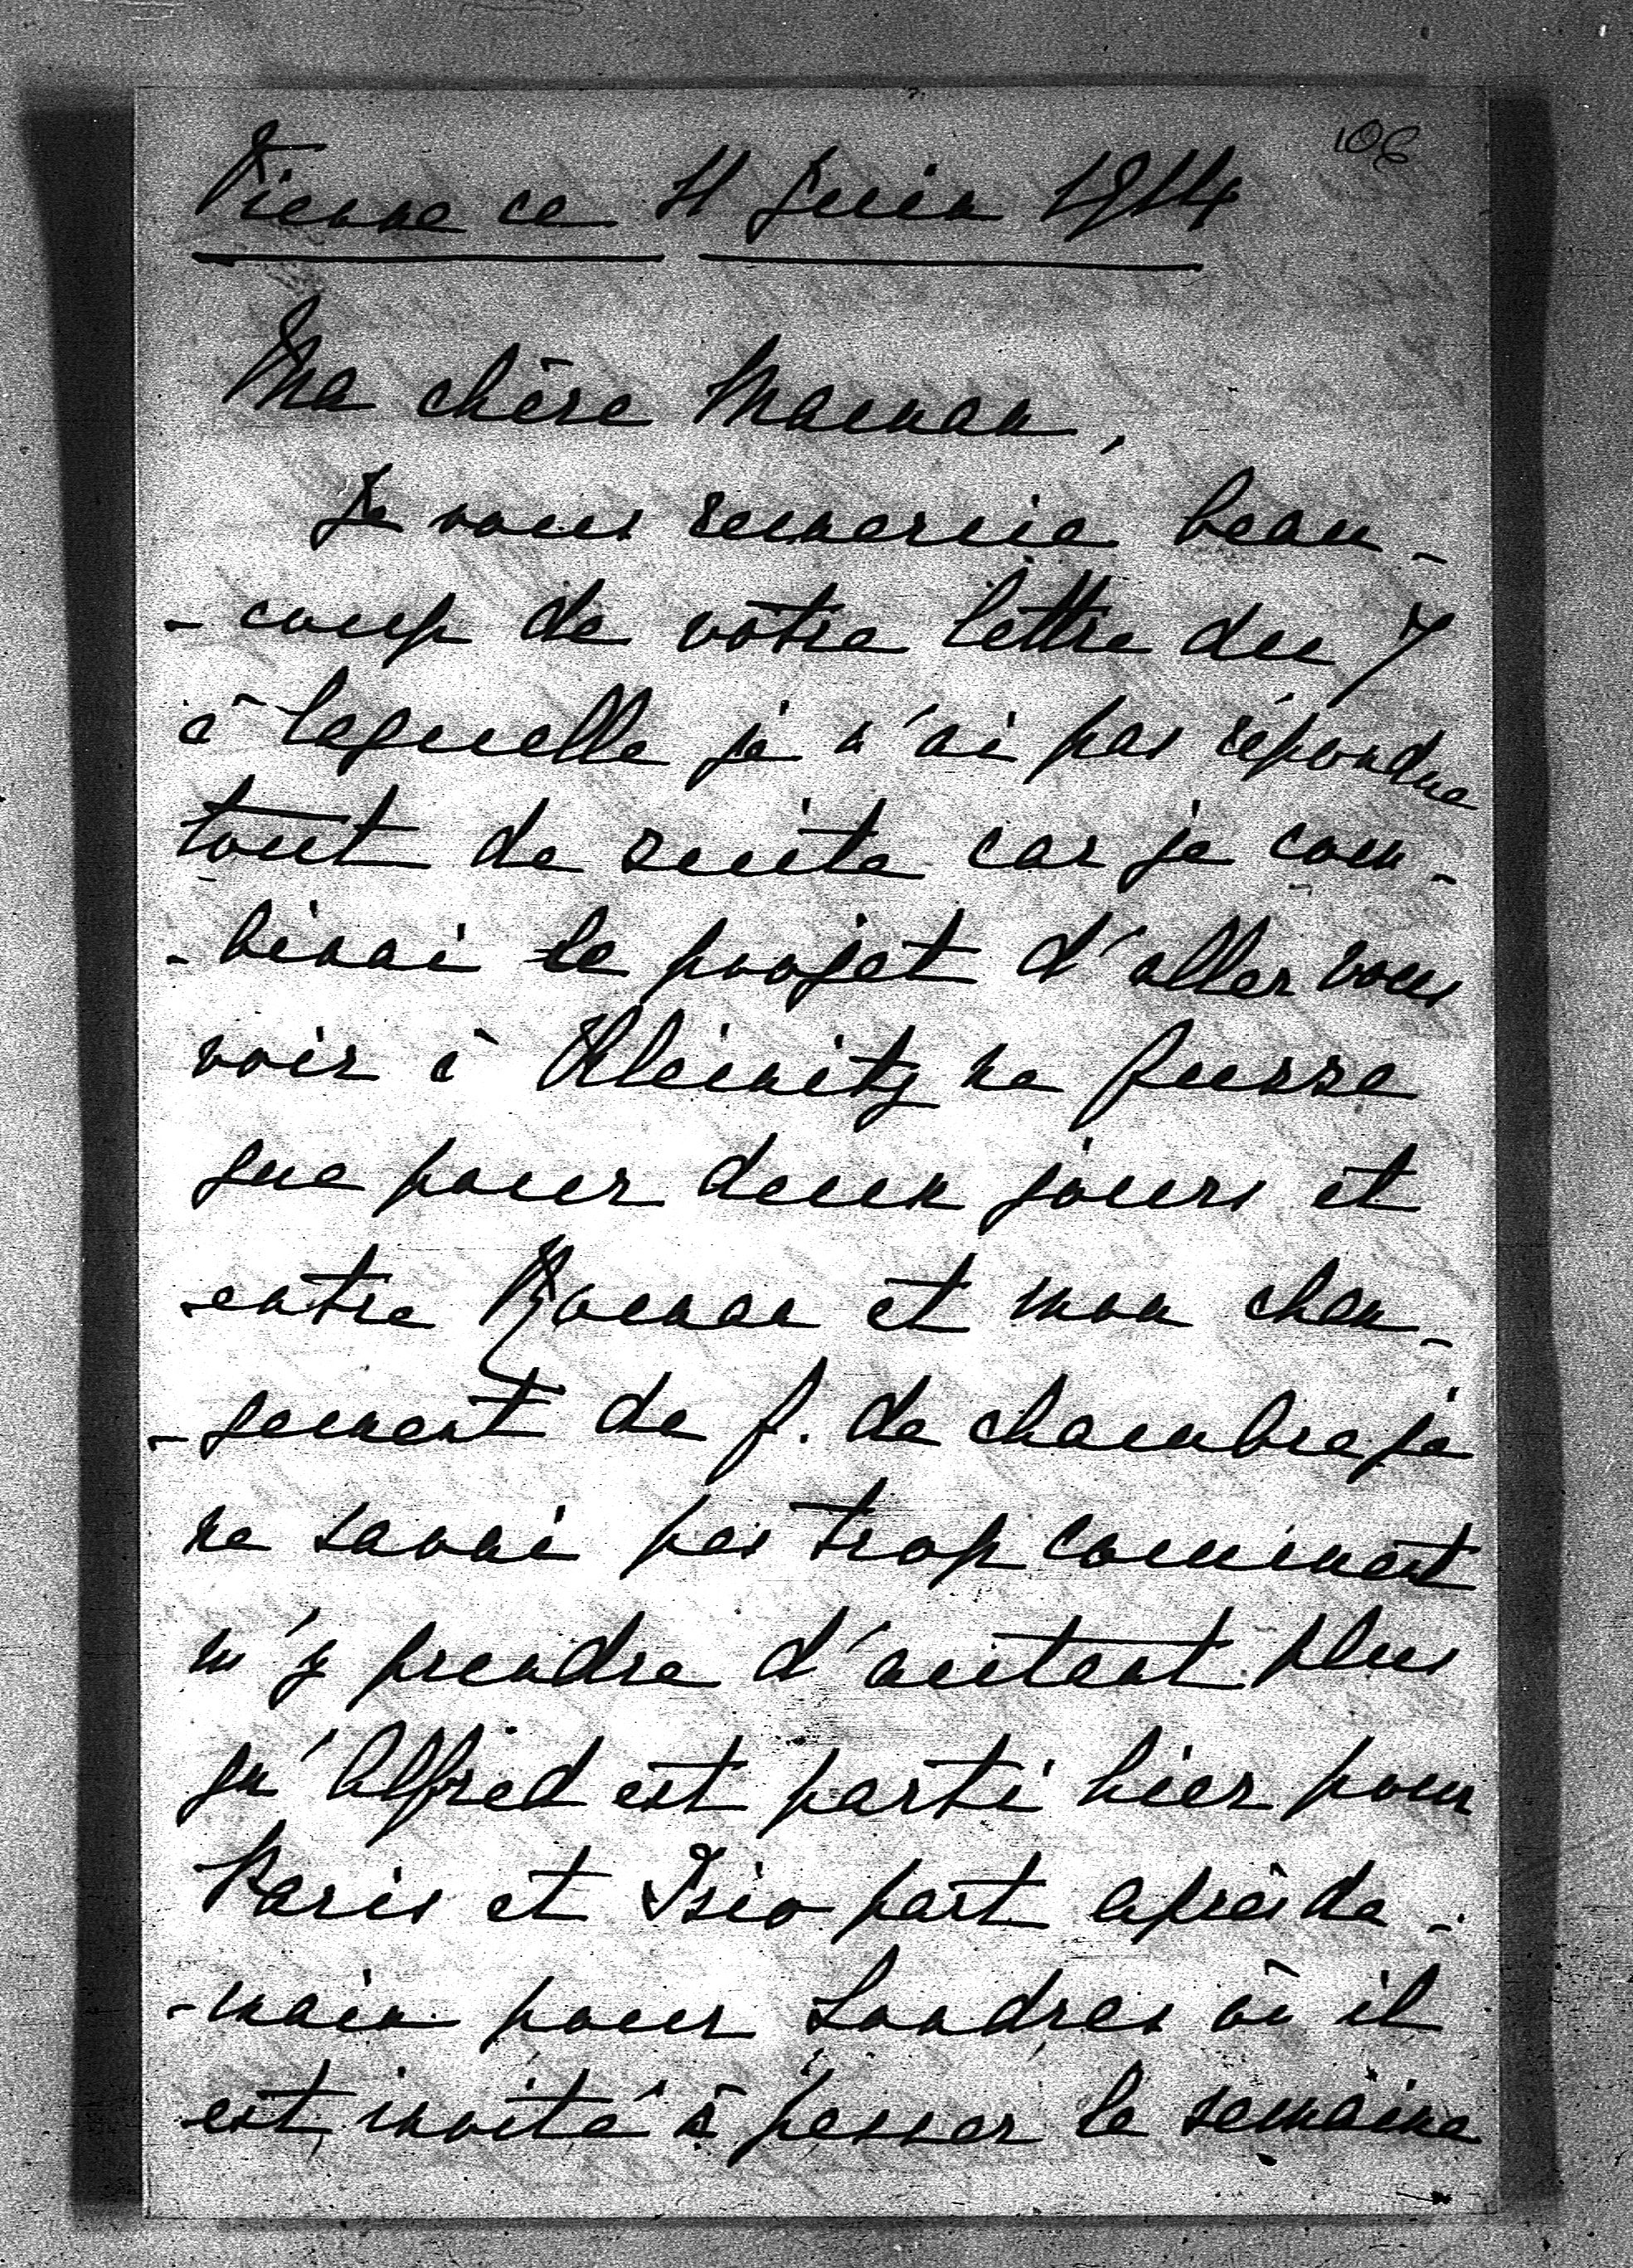 108
Vienne ce 11 Juin 1914
Ma chère Maman,
Je vous remercie beau-
-coup de vôtre lettre du 7
à laquelle je n'ai pas répondue
tout de suite car je com-
-binai le projet d'aller vous
voir à Kleinitz ne fusse
que pour deux jours et
entre et mon chan-
-gement de f. de chambre je
ne savai pas trop comment
m'y prendre d'autant plus
qu'Alfred est parti hier pour
Paris et Isio part après de-
-main pour Londres où il
est invité à passer la semaine